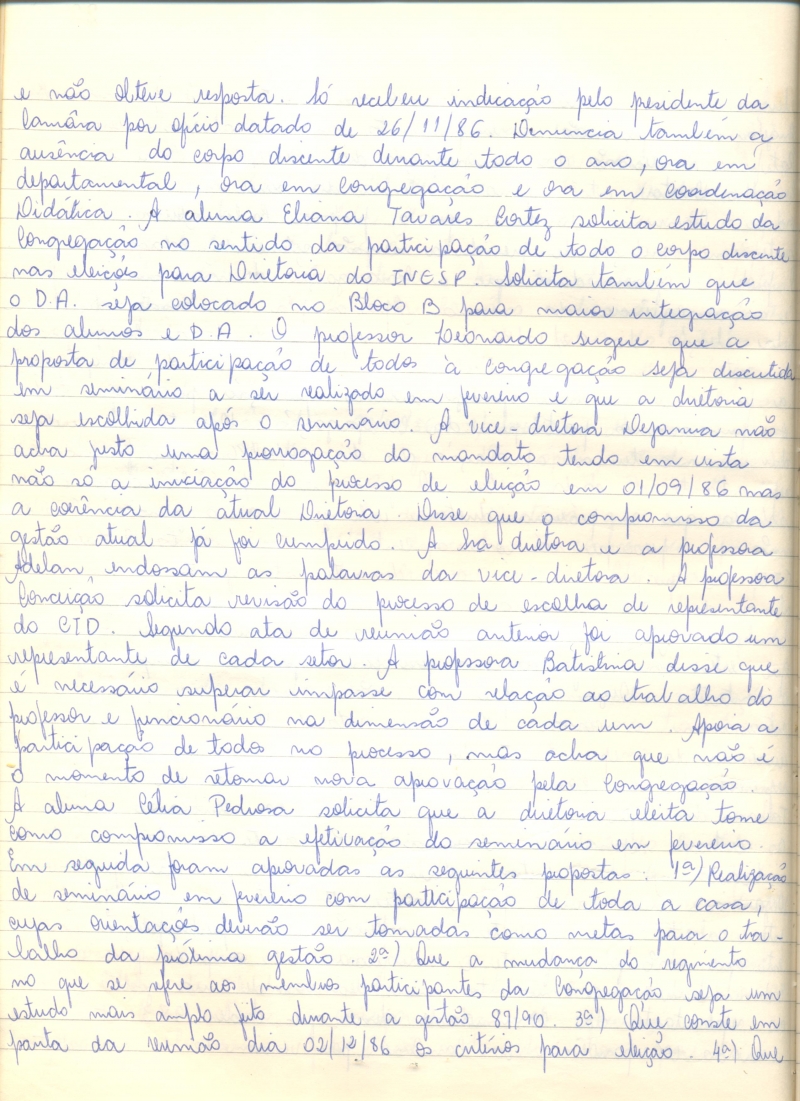 e não obteve resposta. Só recebeu indicação pelo presidente da
Câmara por ofício datado de 26/11/86. Denuncia também a
ausência do corpo discente durante todo o ano, ora em
departamental, ora em Congregação e ora em Coordenação
Didática. A aluna Eliana Tavares Cortez solicita estudo da
Congregação no sentido da participação de todo o corpo discente
nas eleições para Diretoria do INESP. Solicita também que
o D.A. seja colocado no Bloco B para maior integração
dos alunos e D.A. O professor Leonardo sugere que a
proposta de participação de todos à congregação seja discutida
em seminário a ser realizado em fevereiro e que a diretoria
seja escolhida após o seminário. A vice-diretora Dejanira não
acha justo uma prorrogação do mandato tendo em vista
não só a iniciação do processo de eleição em 01/09/86 mas
a coerência da atual Diretora. Disse que o compromisso da
gestão atual já foi cumprido. A Sra diretora e a professora
Adelan, endossam as palavras da vice-diretora. A professora
Conceição solicita revisão do processo de escolha de representante
do CID. Segundo ata de reunião anterior foi aprovado um
representante de cada setor. A professora Batistina disse que
é necessário superar impasse com relação ao trabalho do
professor e funcionário na dimensão de cada um. Apoia a
participação de todos no processo, mas acha que não é
o momento de retomar nova aprovação pela Congregação.
A aluna Célia Pedrosa solicita que a diretoria eleita tome
como compromisso a efetivação do seminário em fevereiro.
Em seguida foram aprovadas as seguintes propostas. 1ª) Realização
de seminário em fevereiro com participação de toda a casa,
cujas orientações deverão ser tomadas como metas para o tra-
balho da próxima gestão. 2ª) Que a mudança do regimento
no que se refere aos membros participantes da Congregação seja um
estudo mais amplo feito durante a gestão 87/90. 3ª) Que conste em
pauta da reunião dia 02/12/86 os critérios para eleição. 4ª) Que